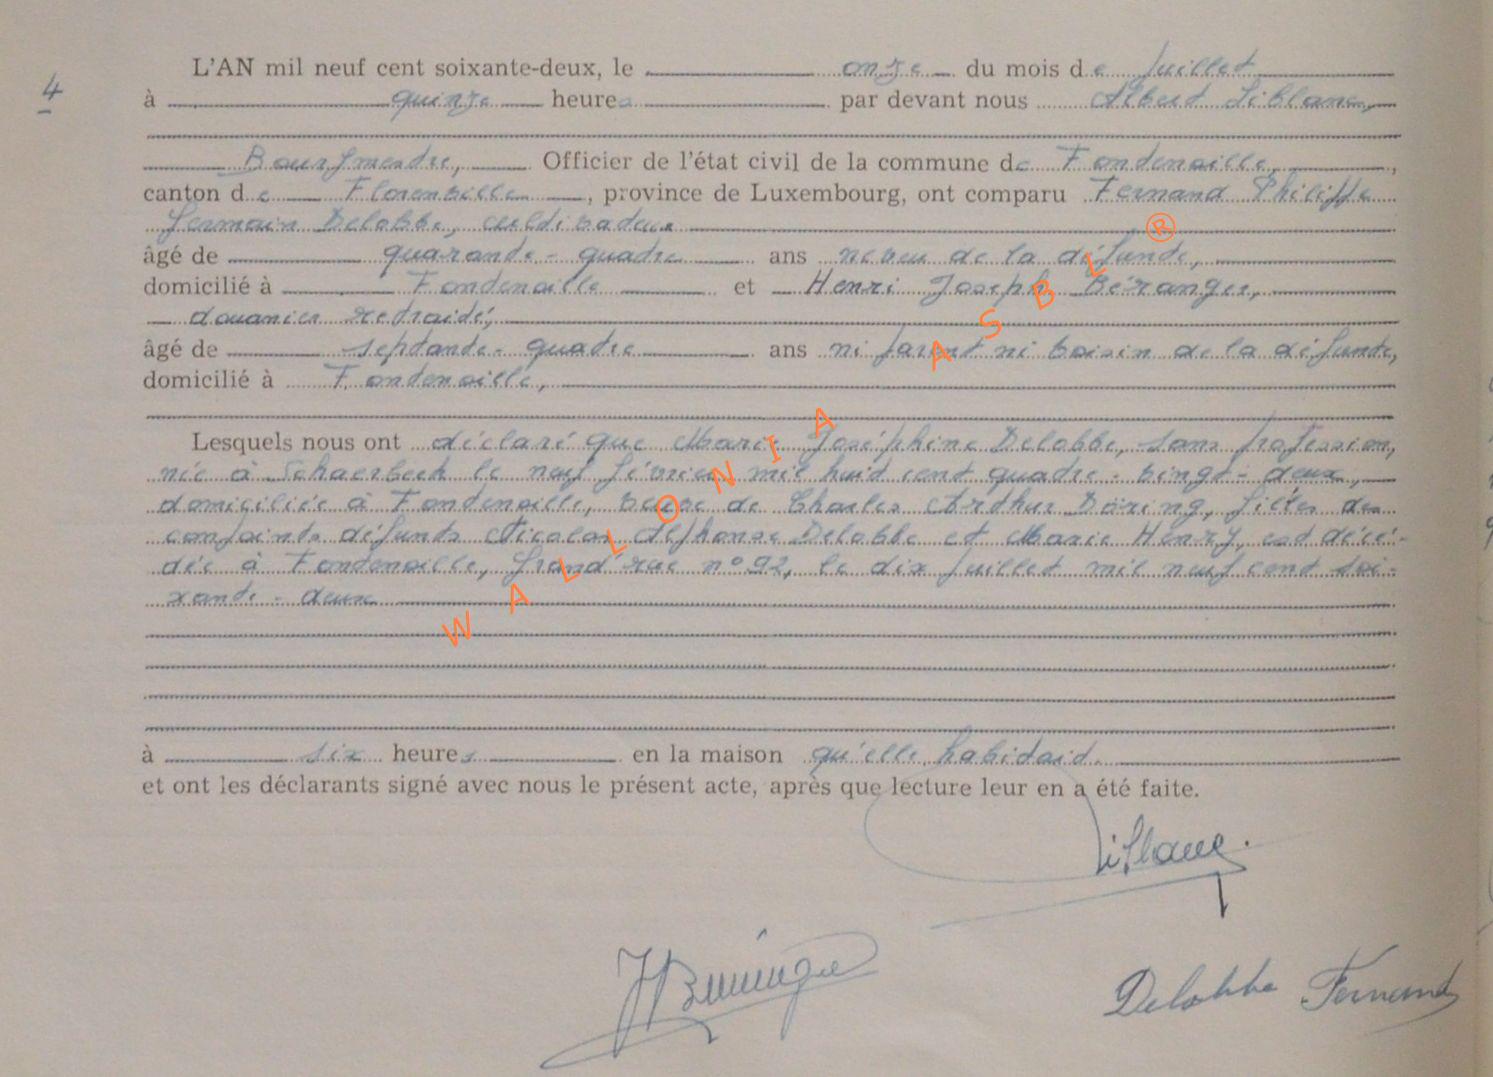 4
L'AN mil neuf cent soixante-deux, le onze du mois de juillet
à quinze heures par devant nous Albert Liblanc,
Bourgmestre, Officier de l'état civil de la commune de Fontenoille,
canton de Florenville, province de Luxembourg, ont comparu Fernand Philippe
Germain Delobbe, cultivateur
âgé de quarante-quatre ans neveu de la défunte,
domicilié à Fontenoille et Henri Joseph Béranger,
douanier retraité,
âgé de septante-quatre ans ni parent ni voisin de la défunte,
domicilié à Fontenoille,
Lesquels nous ont déclaré que Marie Joséphine Delobbe, sans profession,
née à Schaerbeek le neuf février mil huit cent quatre-vingt-deux,
domiciliée à Fontenoille, veuve de Charles Arthur Döring, fille des
conjoints défunts Nicolas Alphonse Delobbe et Marie Henry, est décé-
dée à Fontenoille, Grand'rue n° 92, le dix juillet mil neuf cent soi-
xante-deux
à six heures en la maison qu'elle habitait.
et ont les déclarants signé avec nous le présent acte, après que lecture leur en a été faite.
Liblanc.
Delobbe Fernand
WALLONIA ASBL ®